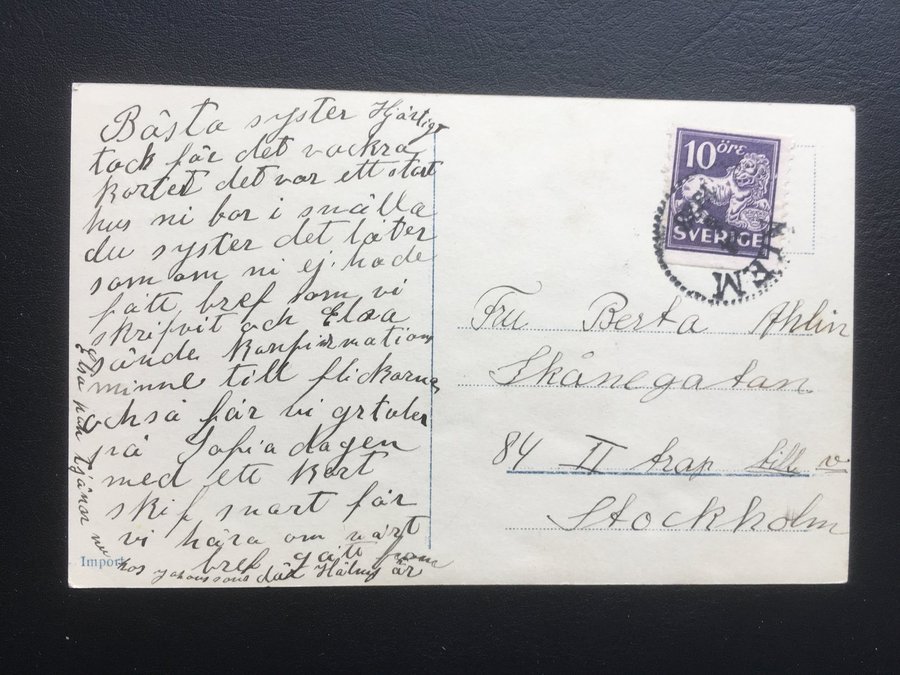 Bästa syster Hjärtligt
tack för det vackra
kortet det var ett stort
hus ni bor i snälla
du syster det låter
som om ni ej hade
fått bref som vi
skrifvit och Elsa
sände konfirmation
minne till flickorna
också får vi grtuler
på Sofia dagen
med ett kort
skif snart får
vi höra om vårt
bref gått fram
Elsa tjänar nu
hos där är
Import
10 ÖRE
SVERIGE
Fru Berta Ahlin
Skånegatan
84 II trap till v
Stockholm